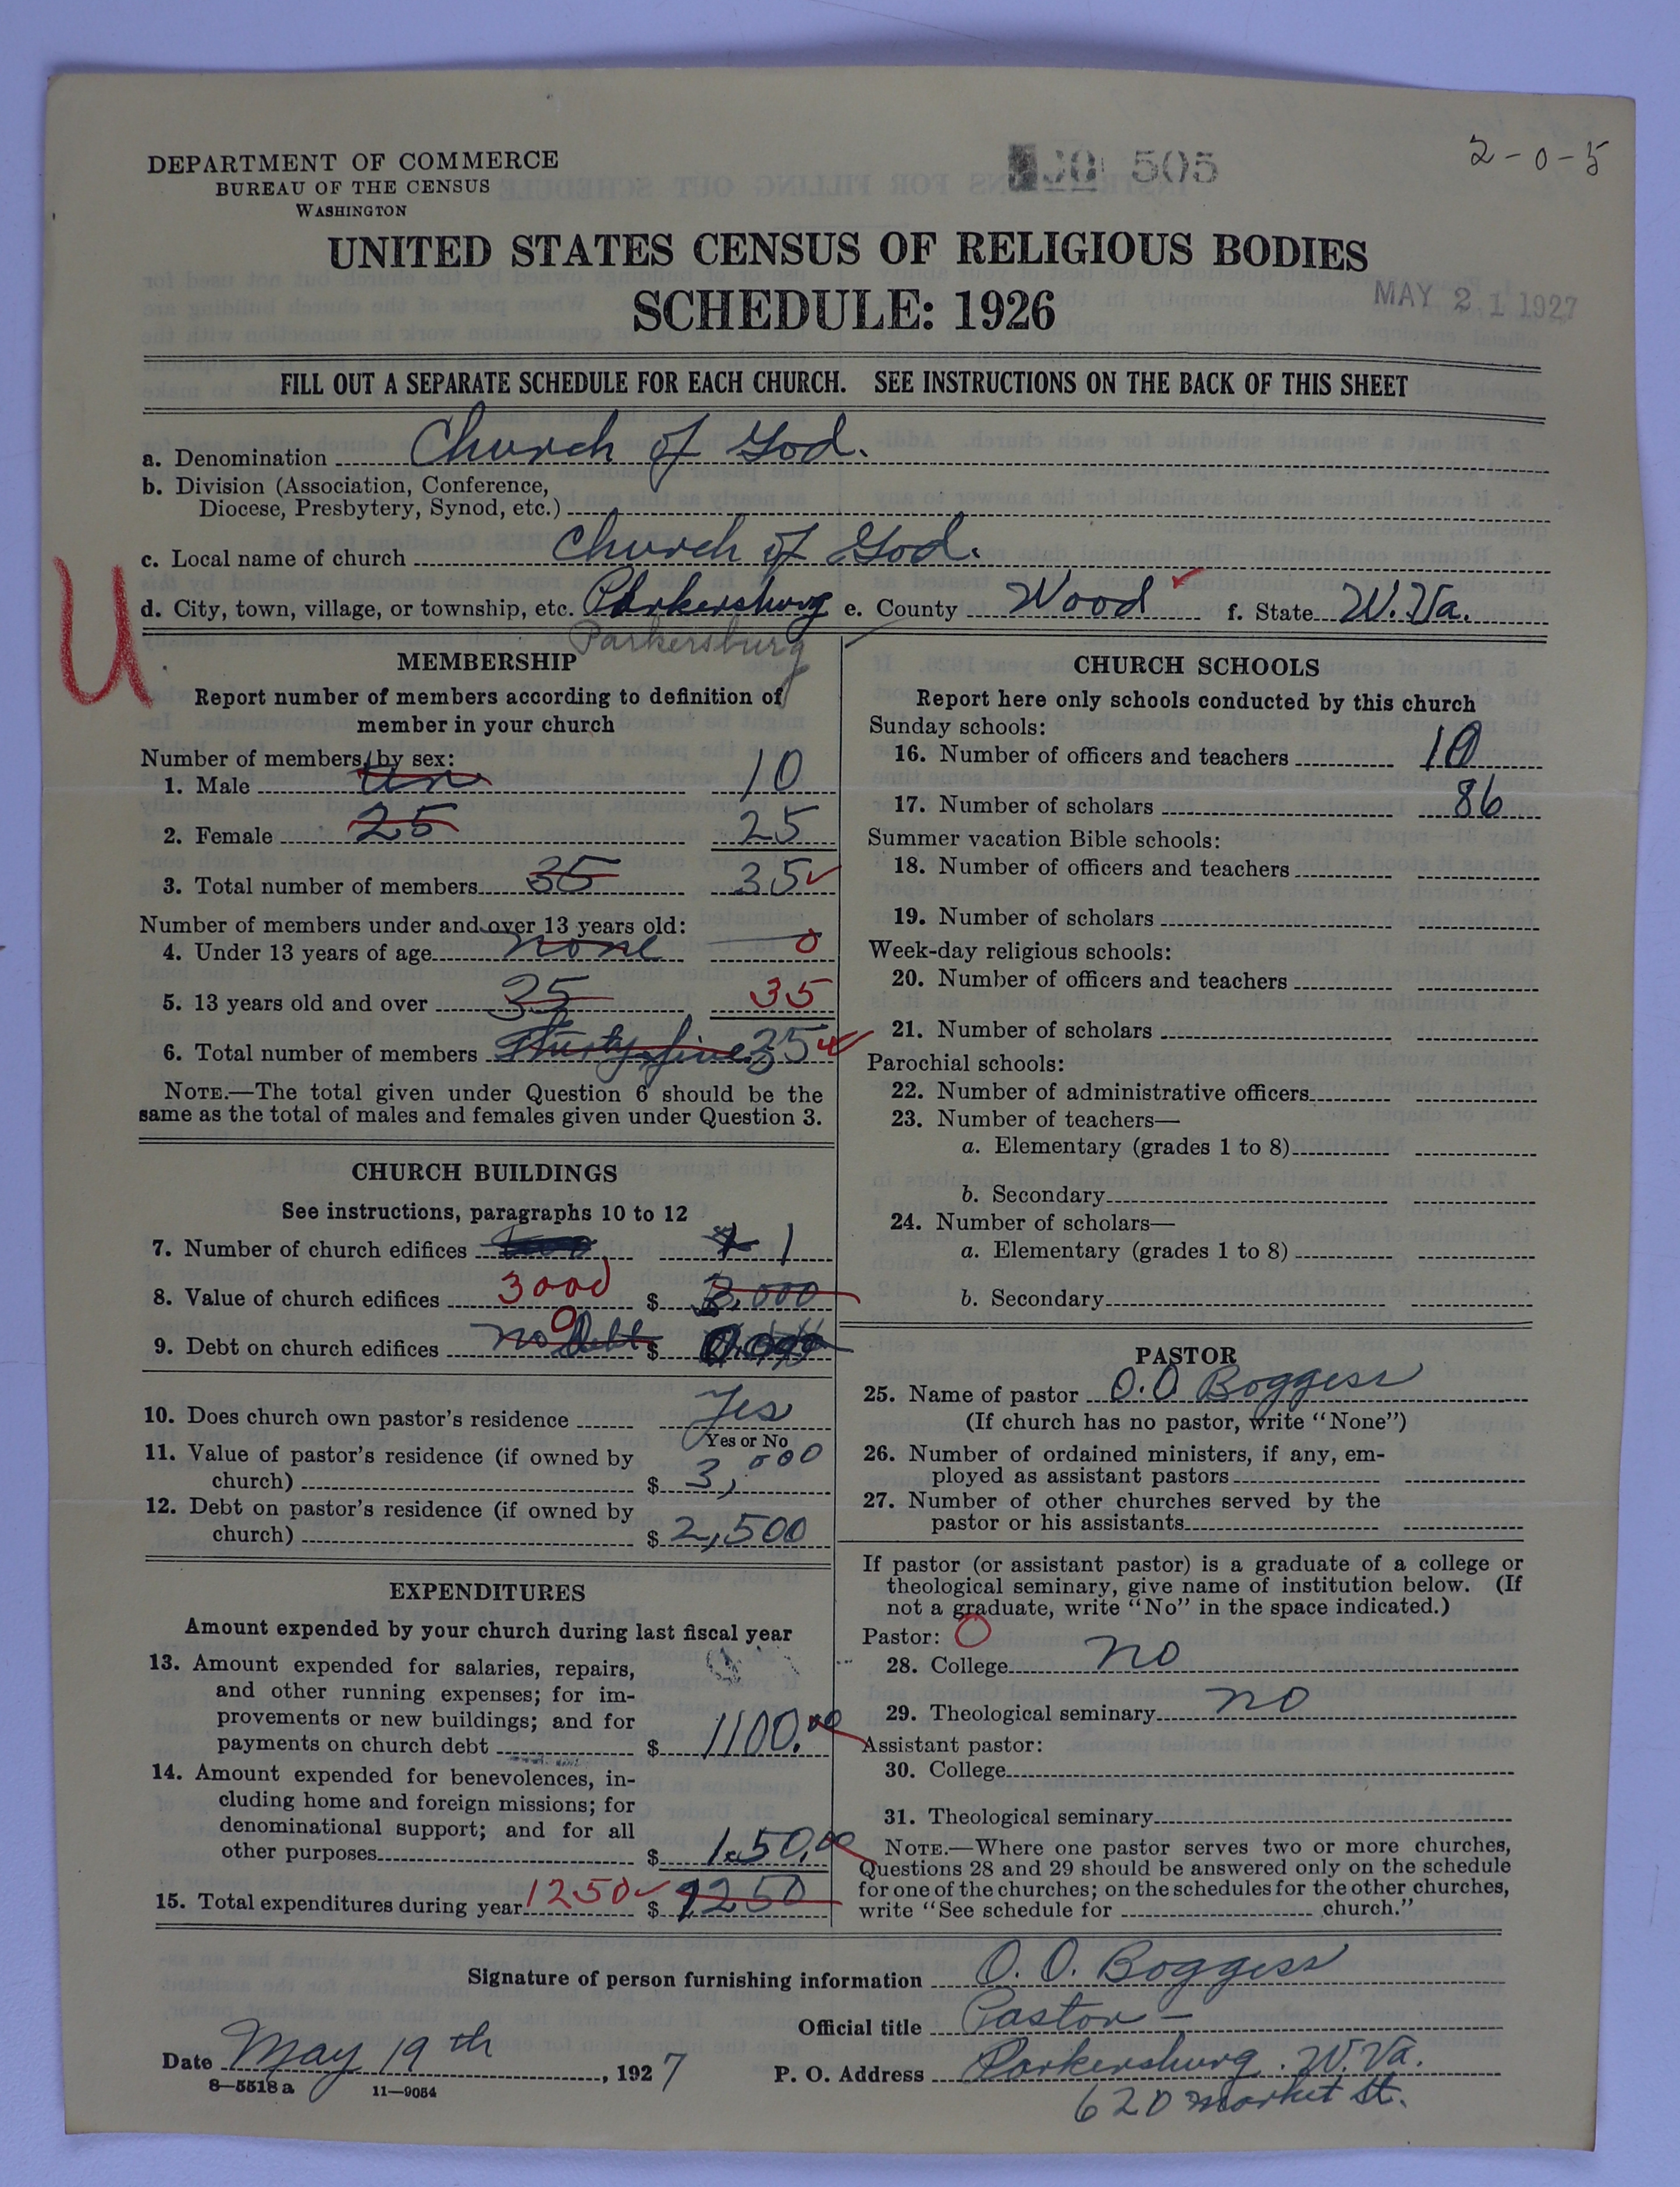 DEPARTMENT OF COMMERCE
BUREAU OF THE CENSUS
WASHINGTON
505
2-0-5
UNITED STATES CENSUS OF RELIGIOUS BODIES
SCHEDULE: 1926
MAY 21 1927
FILL OUT A SEPARATE SCHEDULE FOR EACH CHURCH. SEE INSTRUCTIONS ON THE BACK OF THIS SHEET
a. Denomination Church of God.
b. Division (Association, Conference,
Diocese, Presbytery, Synod, etc.)
c. Local name of church Church of God.
d. City, town, village, or township, etc. Parkersburg e. County Wood f. State W. Va.
U
Parkersburg
MEMBERSHIP
Report number of members according to definition of
member in your church
Number of members by sex:
1. Male ten 10
2. Female 25 25
3. Total number of members 35 35
Number of members under and over 13 years old:
4. Under 13 years of age none 0
5. 13 years old and over 35 35
6. Total number of members Thirty five 35
NOTE.—The total given under Question 6 should be the
same as the total of males and females given under Question 3.
CHURCH BUILDINGS
See instructions, paragraphs 10 to 12
7. Number of church edifices 1
8. Value of church edifices 3000 $ 3,000
9. Debt on church edifices no Debt 0 $
10. Does church own pastor's residence Yes
Yes or No
11. Value of pastor's residence (if owned by
church) $ 3,000
12. Debt on pastor's residence (if owned by
church) $ 2,500
EXPENDITURES
Amount expended by your church during last fiscal year
13. Amount expended for salaries, repairs,
and other running expenses; for im-
provements or new buildings; and for
payments on church debt $ 1100.00
14. Amount expended for benevolences, in-
cluding home and foreign missions; for
denominational support; and for all
other purposes $ 150.00
15. Total expenditures during year 1250 $ 1250
CHURCH SCHOOLS
Report here only schools conducted by this church
Sunday schools:
16. Number of officers and teachers 10
17. Number of scholars 86
Summer vacation Bible schools:
18. Number of officers and teachers
19. Number of scholars
Week-day religious schools:
20. Number of officers and teachers
21. Number of scholars
Parochial schools:
22. Number of administrative officers
23. Number of teachers—
a. Elementary (grades 1 to 8)
b. Secondary
24. Number of scholars—
a. Elementary (grades 1 to 8)
b. Secondary
PASTOR
25. Name of pastor O.O. Boggess
(If church has no pastor, write "None")
26. Number of ordained ministers, if any, em-
ployed as assistant pastors
27. Number of other churches served by the
pastor or his assistants
If pastor (or assistant pastor) is a graduate of a college or
theological seminary, give name of institution below. (If
not a graduate, write "No" in the space indicated.)
Pastor: 0
28. College no
29. Theological seminary no
Assistant pastor:
30. College
31. Theological seminary
NOTE.—Where one pastor serves two or more churches,
Questions 28 and 29 should be answered only on the schedule
for one of the churches; on the schedules for the other churches,
write "See schedule for church."
Signature of person furnishing information O. O. Boggess
Official title Pastor -
Date May 19th, 1927 P. O. Address Parkersburg. W. Va.
8-5518a 11-9054
620 market St.